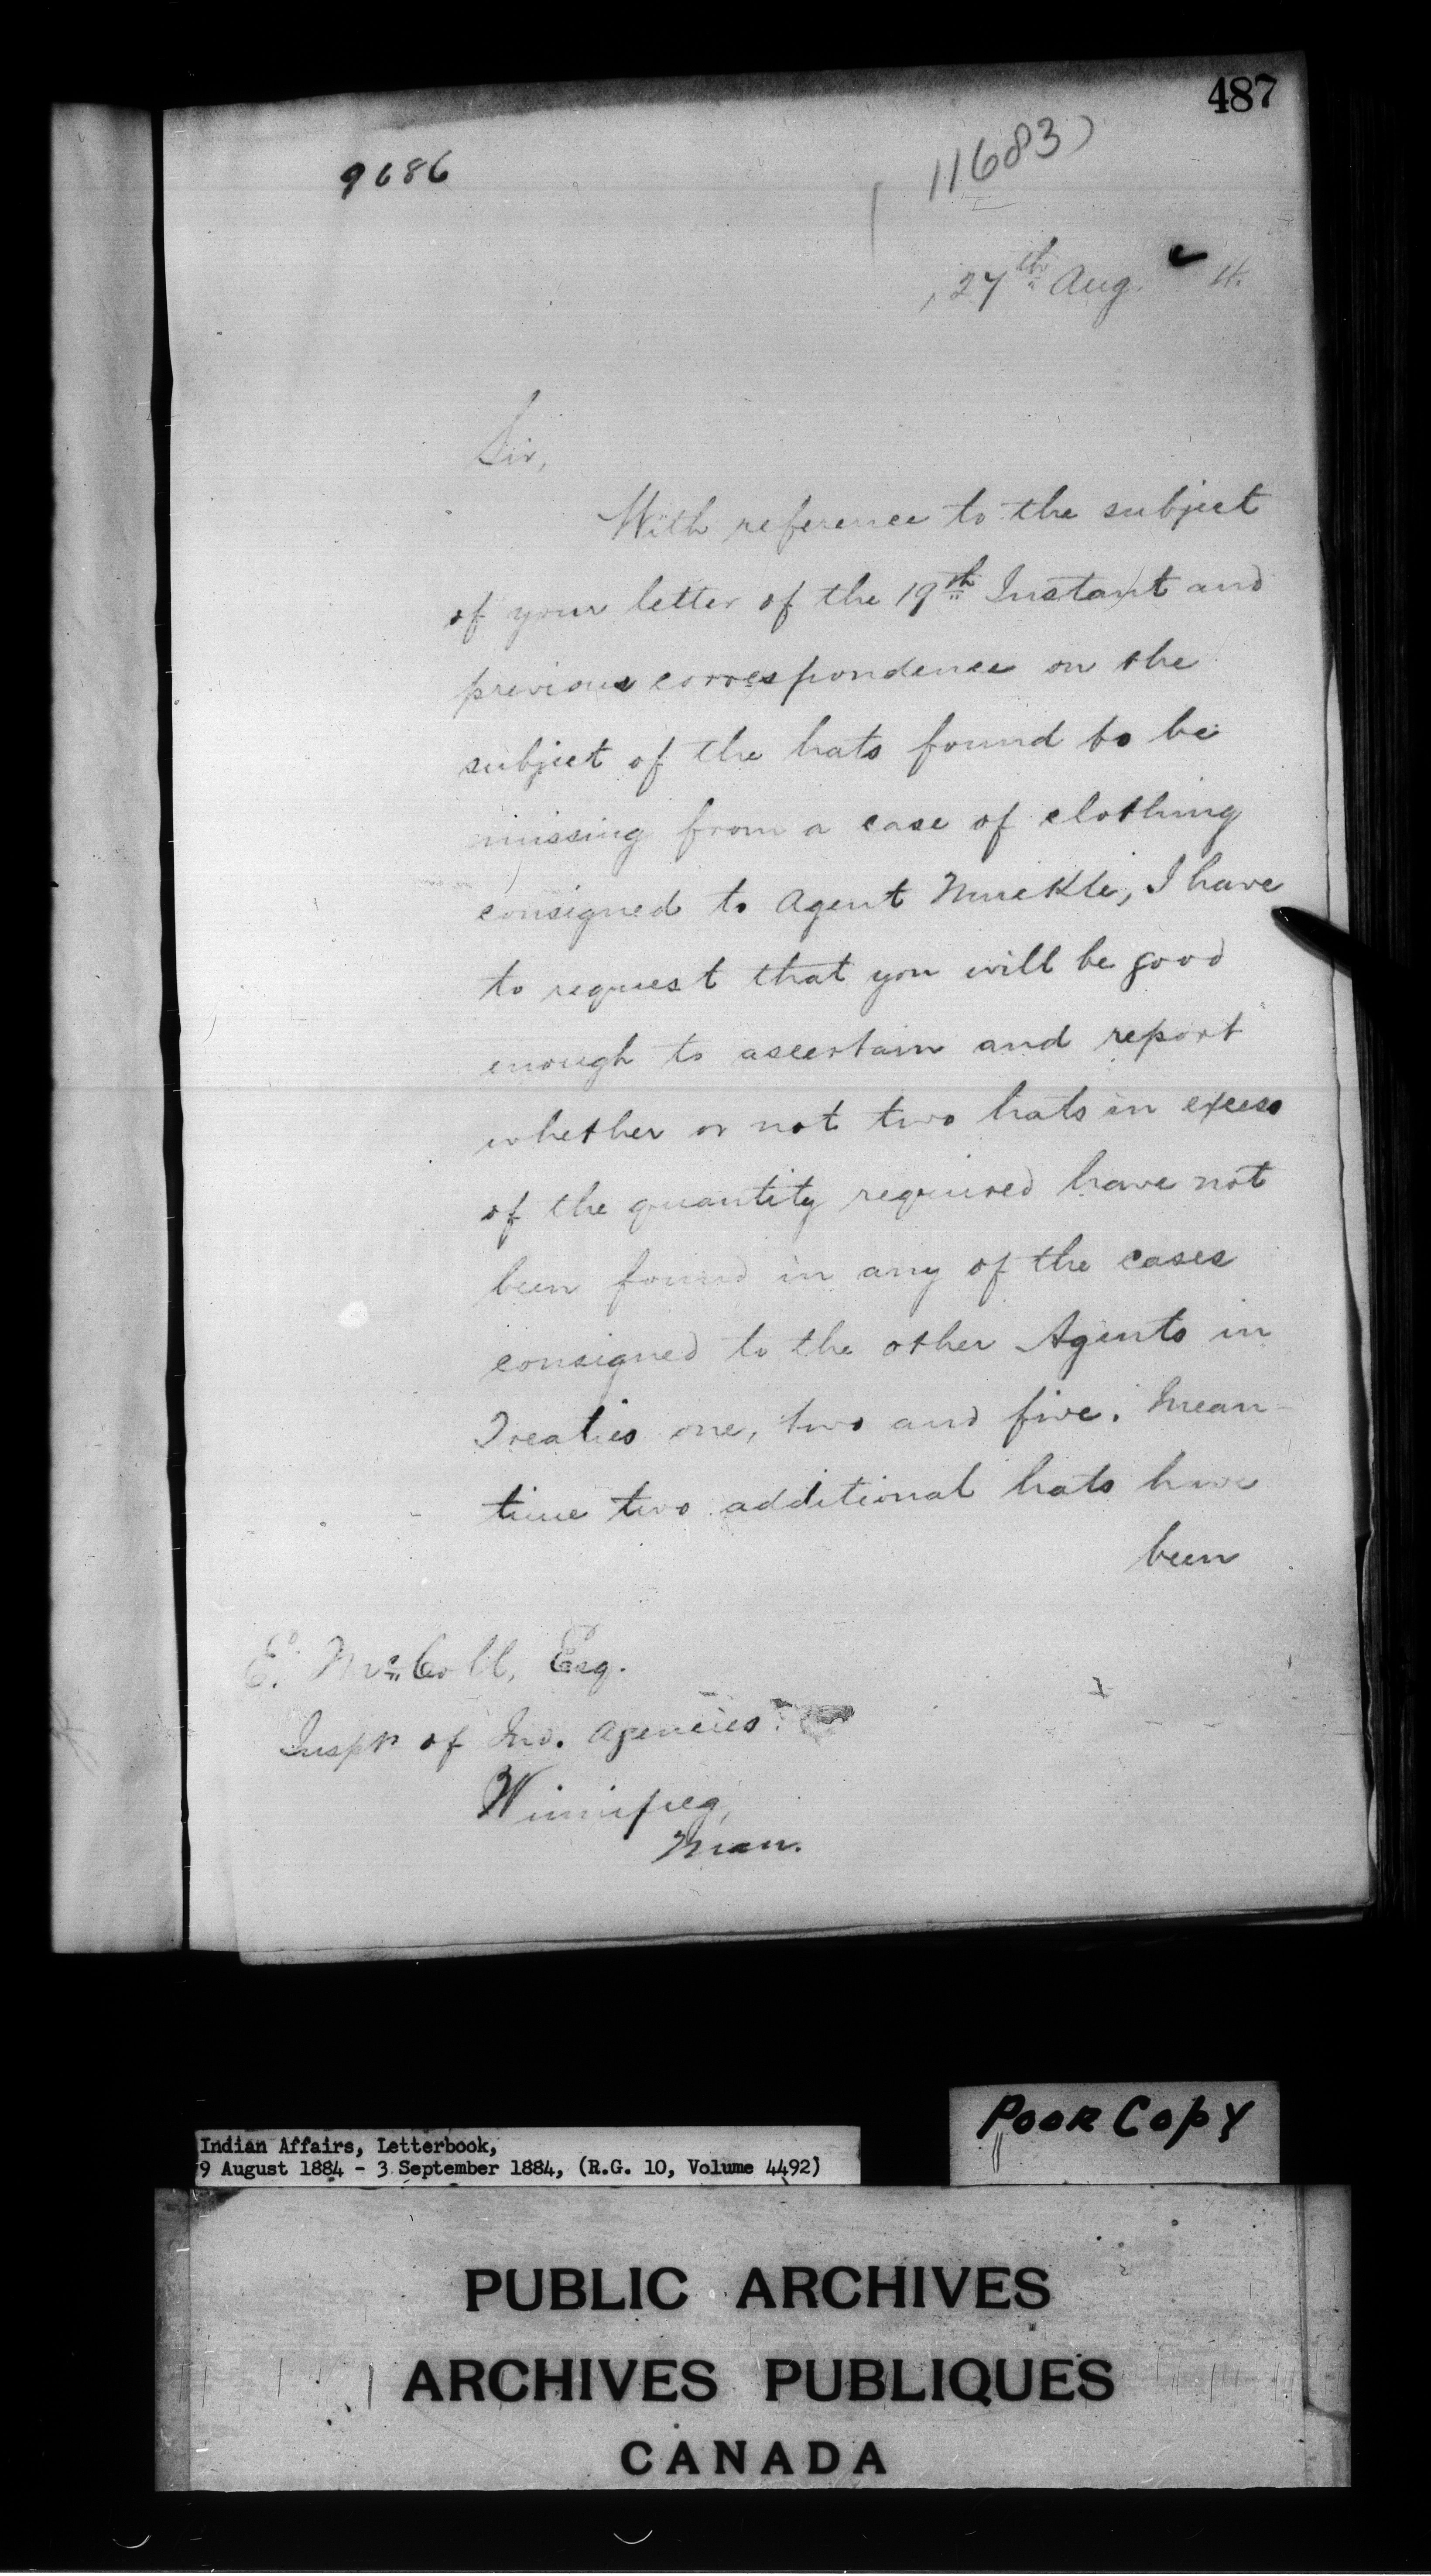 487
9686
11683
27th Aug. 4.
Sir,
With reference to the subject
of your letter of the 19th Instant and
previous correspondence on the
subject of the hats found to be
missing from a case of clothing
consigned to Agent Muckle, I have
to request that you will be good
enough to ascertain and report
whether or not two hats in excess
of the quantity required have not
been found in any of the cases
consigned to the other Agents in
Treaties one, two and five. Mean-
time two additional hats have
been
E. McColl, Esq.
Inspr of Ind. Agencies.
Winnipeg,
Man.
Poor Copy
Indian Affairs, Letterbook,
9 August 1884 - 3 September 1884, (R.G. 10, Volume 4492)
PUBLIC ARCHIVES
ARCHIVES PUBLIQUES
CANADA